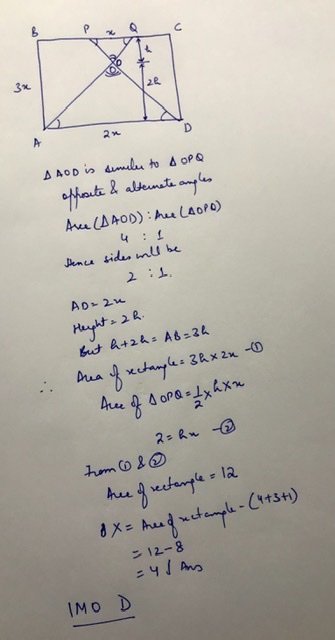 B P x Q C
h
O
3x 2h
A 2x D
Δ AOD is similar to Δ OPQ
opposite & alternate angles
Area (ΔAOD) : Area (ΔOPQ)
4 : 1
Hence sides will be
2 : 1.
AD = 2x
Height = 2h.
But h+2h = AB = 3h
∴ Area of rectangle = 3h × 2x - ①
Area of ΔOPQ = 1/2 × h × x
2 = hx - ②
From ① & ②
Area of rectangle = 12
X = Area of rectangle - (4+3+1)
= 12 - 8
= 4 Ans
IMO D